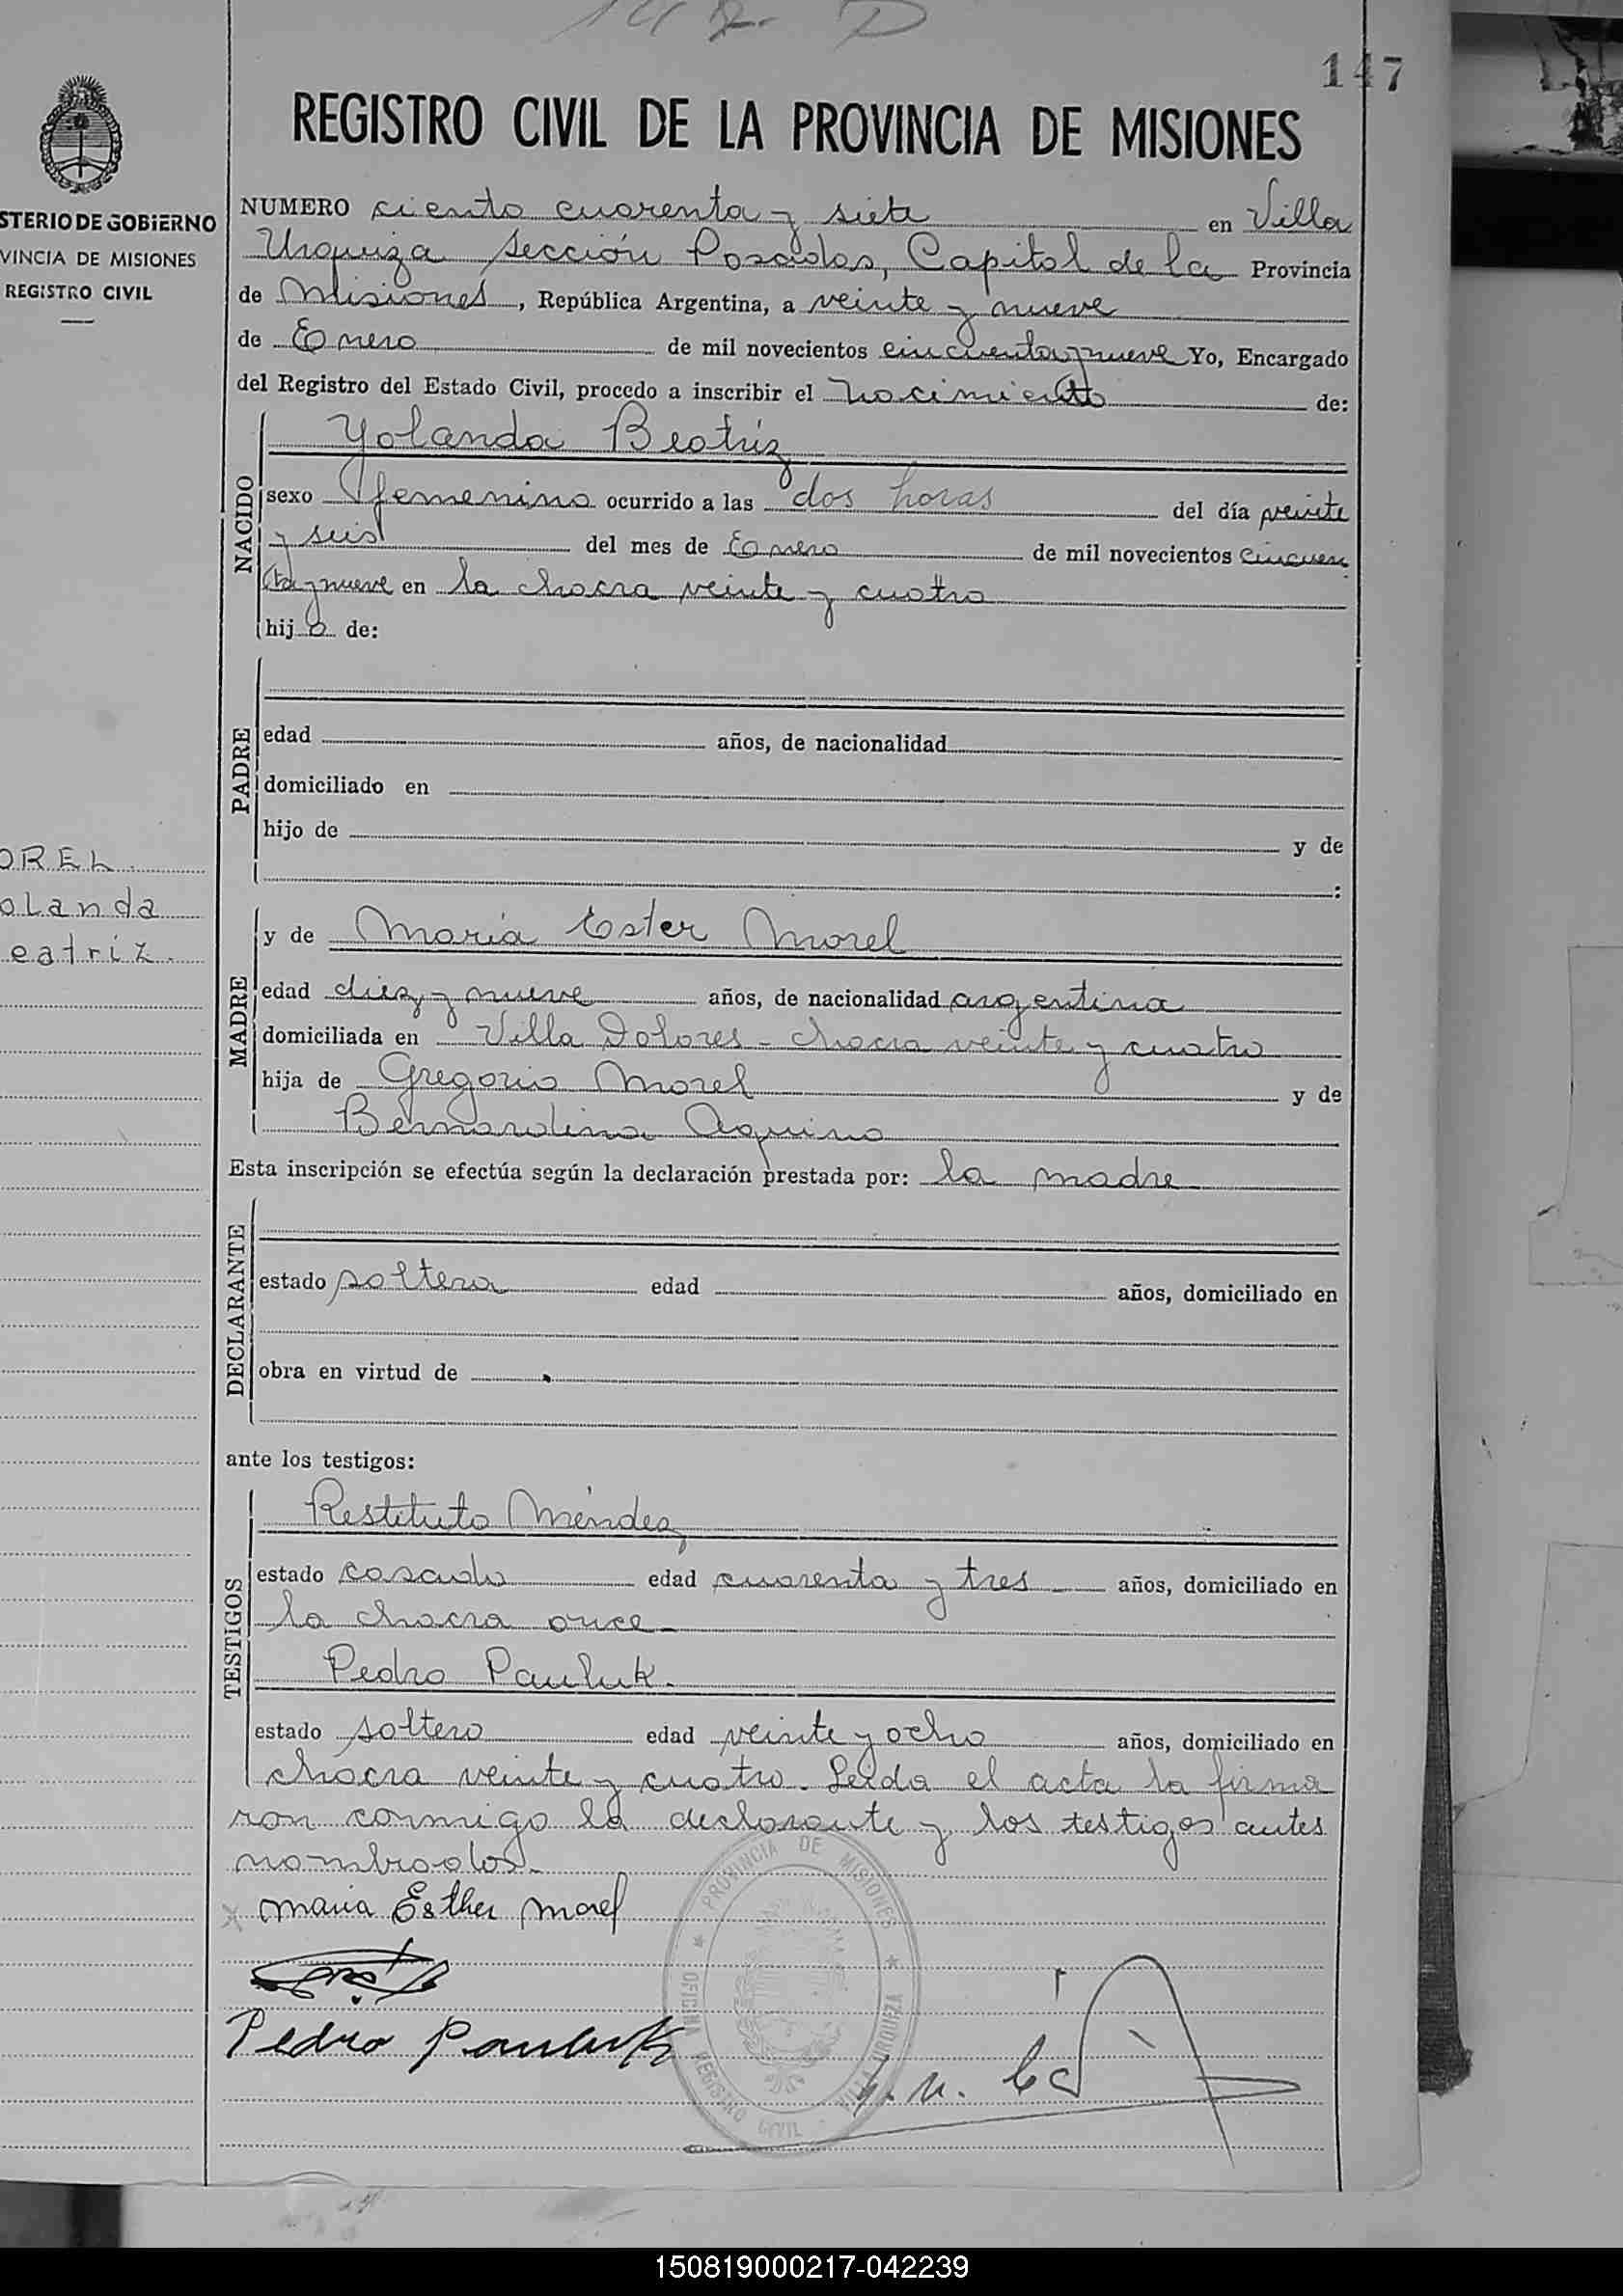 147
REGISTRO CIVIL DE LA PROVINCIA DE MISIONES
STERIO DE GOBIERNO
VINCIA DE MISIONES
REGISTRO CIVIL
NUMERO ciento cuarenta y siete en Villa
Urquiza Sección Posadas, Capital de la Provincia
de Misiones, República Argentina, a veinte y nueve
de Enero de mil novecientos cincuenta y nueve Yo, Encargado
del Registro del Estado Civil, procedo a inscribir el nacimiento de:
NACIDO
Yolanda Beatriz
sexo femenino ocurrido a las dos horas del día veinte
y seis del mes de Enero de mil novecientos cincuen
ta y nueve en la chacra veinte y cuatro
hija de:
PADRE
edad años, de nacionalidad
domiciliado en
hijo de y de
:
OREL.
olanda
eatriz.
MADRE
y de María Ester Morel
edad diez y nueve años, de nacionalidad argentina
domiciliada en Villa Dolores - chacra veinte y cuatro
hija de Gregorio Morel y de
Bernardina Aquino
Esta inscripción se efectúa según la declaración prestada por: la madre
DECLARANTE
estado soltera edad años, domiciliado en
obra en virtud de
ante los testigos:
TESTIGOS
Restituto Méndez
estado casado edad cuarenta y tres años, domiciliado en
la chacra once
Pedro Pauluk.
estado soltero edad veinte y ocho años, domiciliado en
chacra veinte y cuatro. Leida el acta la firma
ron conmigo la declarante y los testigos antes
nombrados.
Maria Esther Morel
Pedro Pauluk
PROVINCIA DE MISIONES
OFICINA REGISTRO CIVIL VILLA URQUIZA
150819000217-042239